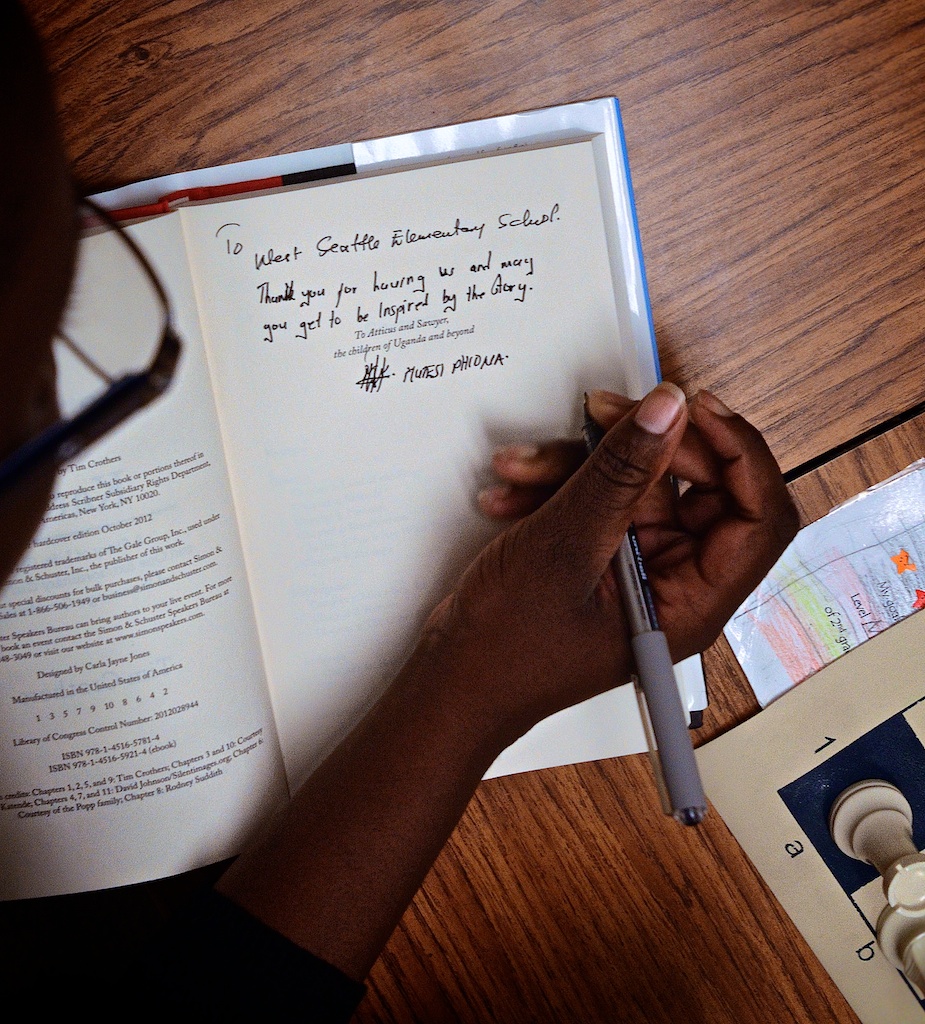 To
West Seattle Elementary School.
Thank you for having us and may
you get to be Inspired by the Story.
To Atticus and Sawyer,
the children of Uganda and beyond
MUTESI PHIONA.
by Tim Crothers
reproduce this book or portions thereof in
address Scribner Subsidiary Rights Department,
Americas, New York, NY 10020.
hardcover edition October 2012
registered trademarks of The Gale Group, Inc., used under
& Schuster, Inc., the publisher of this work.
special discounts for bulk purchases, please contact Simon &
Sales at 1-866-506-1949 or business@simonandschuster.com.
Speakers Bureau can bring authors to your live event. For more
book an event contact the Simon & Schuster Speakers Bureau at
48-3049 or visit our website at www.simonspeakers.com.
Designed by Carla Jayne Jones
Manufactured in the United States of America
1 3 5 7 9 10 8 6 4 2
Library of Congress Control Number: 2012028944
ISBN 978-1-4516-5781-4
ISBN 978-1-4516-5921-4 (ebook)
credits: Chapters 1, 2, 5, and 9: Tim Crothers; Chapters 3 and 10: Courtesy
Katende, Chapters 4, 7, and 11: David Johnson/Silentimages.org; Chapter 6:
Courtesy of the Popp family; Chapter 8: Rodney Suddith
My goal
Level
of 2nd gra
1
a
b